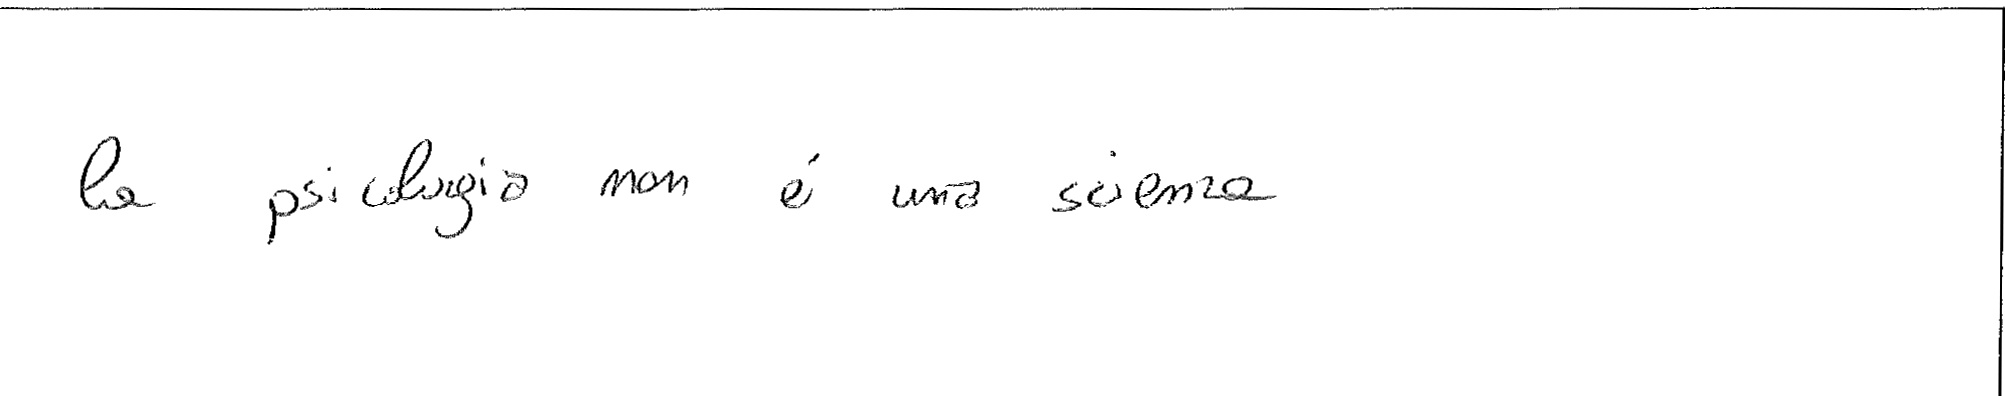 la psicologia non é una scienza